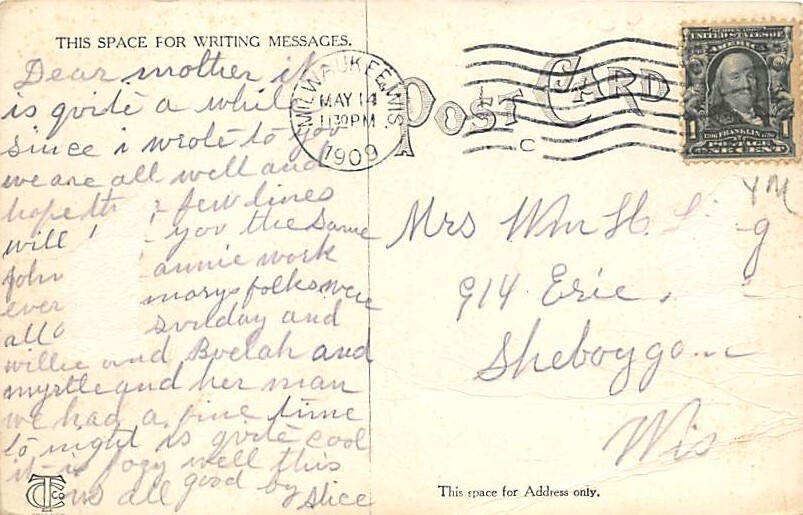 THIS SPACE FOR WRITING MESSAGES.
Dear mother it
is quite a while
since i wrote to you
we are all well and
hope few lines
will you the same
John annie work
ever marys folks were
all sunday and
willie and Boelah and
myrtle and her man
we had a fine time
to night is quite cool
it is fogy well this
us all good by Alice
MILWAUKEE, WIS.
MAY 14
1:30 PM
1909
POST CARD
C
UNITED STATES OF
AMERICA
1 1
1706 FRANKLIN 1790
POSTAGE
ONE CENT
Mrs Wm H. g
914 Erie
Sheboygan
Wis
This space for Address only.